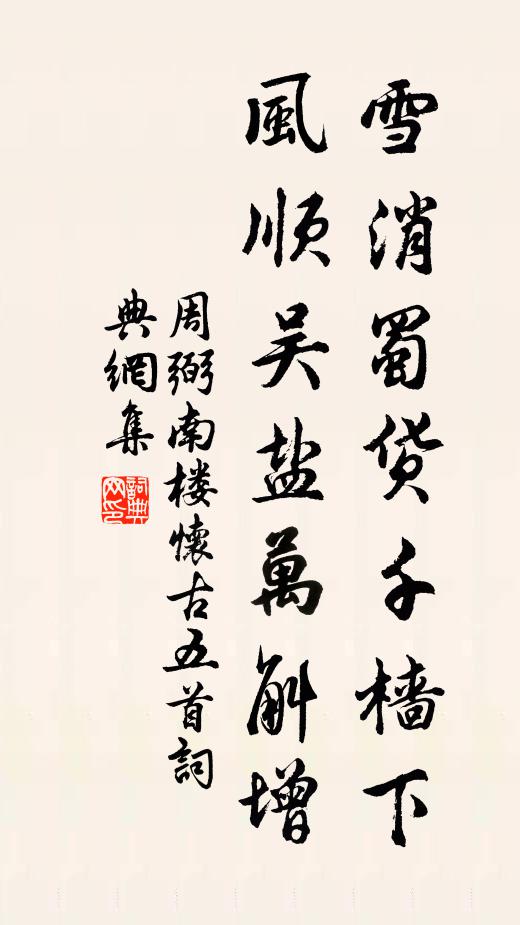 雪消蜀货千檣下
風順吴盐萬斛增
周弼南楼懷古五首詞
典網集
詞典网印